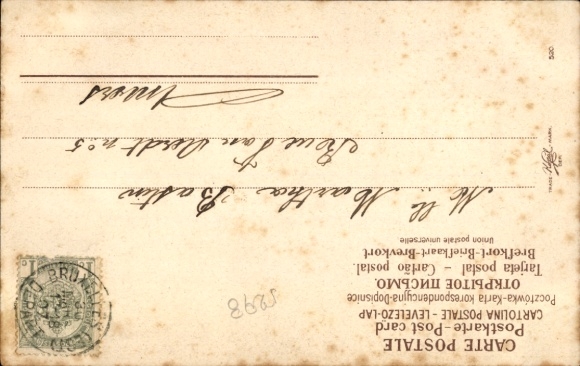 CARTE POSTALE
Postkarte-Post card
CARTOLINA POSTALE - LEVELEZO-LAP
Pocztówka-Karta korespondencyjna-Dopisnice
ОТКРЫТОЕ ПИСЬМО.
Tarjeta postal - Cartão postal.
Brefkort-Briefkaart-Brevkort
Union postale universelle
Mlle Martha Bastin
Rue Van Aerdt n° 5
Anvers
5298
TRADE MARK
520
BRUXELLES
DEPART
1